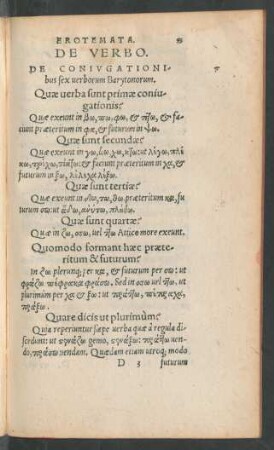 EROTEMATA.
DE VERBO.
DE CONIVGATIONI-
bus sex uerborum Barytonorum.
Quæ uerba sunt primæ coniu-
gationis?
Quæ exeunt in βω, πω, φω, & πτω, & fa-
ciunt præteritum in φα, & futurum in ψω.
Quæ sunt secundæ?
Quæ exeunt in γω, κω, χω, κτω: ut λίγω, πλέ-
κω, τρέχω, τίκτω: & faciunt præteritum in χα, &
futurum in ξω,
Quæ sunt tertiæ?
Quæ exeunt in δω, τω, θω præteritum κα, fu-
turum σω: ut ᾄδω, ἀνύτω, πλήθω.
Quæ sunt quartæ?
Quæ in ζω, σσω, uel ττω Attico more exeunt.
Quomodo formant hæc præte-
ritum & futurum?
In ζω plerunq; per κα, & futurum per σω: ut
φράζω πέφρακα φράσω, Sed in σσω uel ττω, ut
plurimum per χα & ξω: ut πράττω, πέπραχα,
πράξω.
Quare dicis ut plurimum?
Quia reperiuntur sæpe uerba quæ à regula di-
scordunt: ut
D 3 futurum